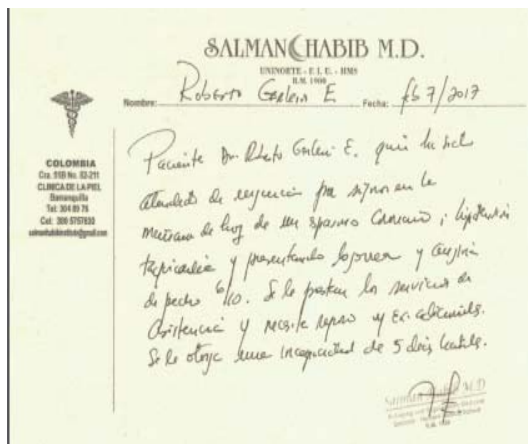 SALMAN HABIB M.D.
UNINORTE - F.I.U. - HMS
R.M. 1000
Nombre: Roberto Gerlein E Fecha: feb 7/2017
COLOMBIA
Cra. 51B No. 82-211
CLINICA DE LA PIEL
Barranquilla
Tel: 304 89 76
Cel: 300 5757833
Paciente Dr. Roberto Gerlein E. quien ha sido
atendido de urgencia por signos en la
mañana de hoy de un espasmo coronario; hipotensión
taquicardia y presentando y angina
de pecho 6/10. Se le prestan los servicios de
asistencia y necesita reposo y
Se le otorga una incapacidad de 5 días
Salman Habib M.D.